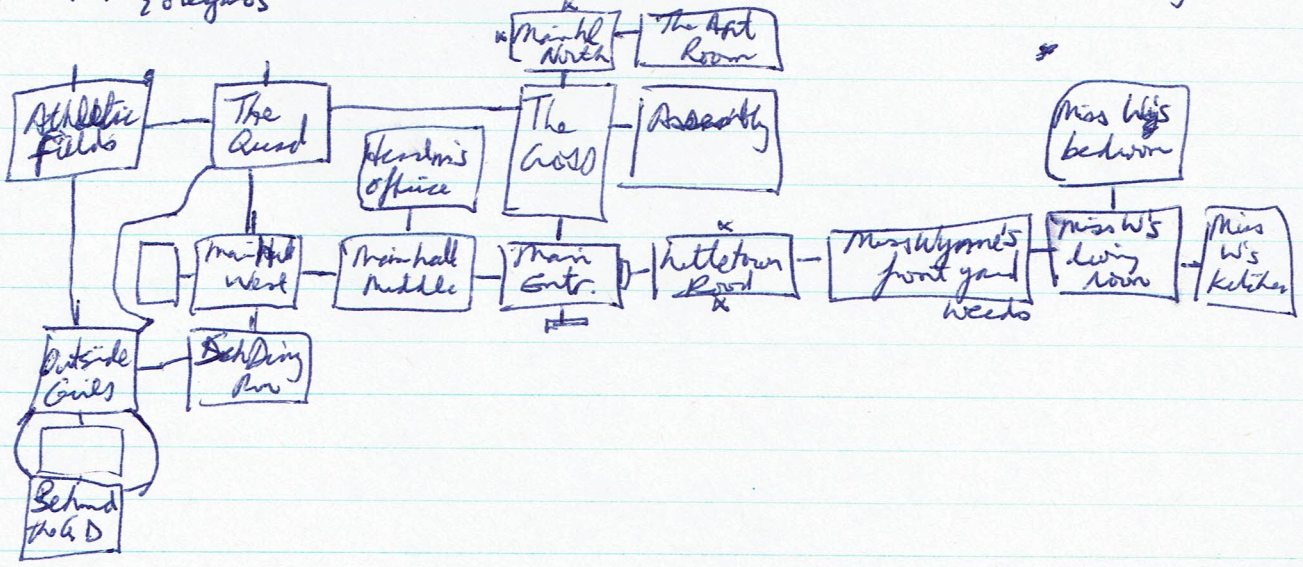 Main hl
North
The Art
Room
Athletic
Fields
The
Quad
Headm's
office
The
Cross
Assembly
Miss Wy's
bedroom
Main Hall
West
Main hall
Middle
Main
Entr.
Littletown
Road
Miss Wynne's
front yard
weeds
Miss W's
living
room
Miss
W's
Kitchen
Outside
Girls
Behind
the G D